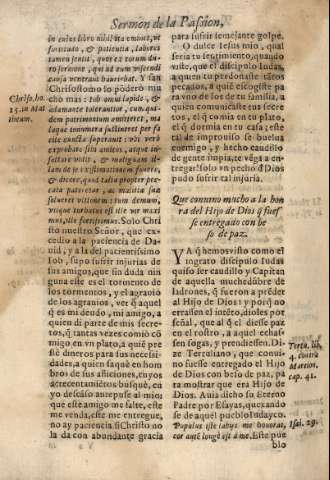 Sermon de la Passion,
fortitudo, & patientia, labores
tamen sensit, quos ex totum du-
Chriso. ho.
causa venerat hauriebat. Y san
Chrisostomo lo ponderò mu
cho mas: Iob omni lapide, &
adamante tolerantior, cum quæ-
dam patrimonium amitteret, ma
la que innumera sustineret per sæ
exprobare sibi amicos, atque in-
dam de se existimationem funere,
& dicere, quod talia propter pec-
cata pateretur, ac malitiæ suæ
solueret vltionem: tum demum,
vtique turbatus est ille vir maxi
mus, ille fortissimus. Solo Chri
sto nuestro Señor, que ex-
cedio a la paciencia de Da-
uid, y a la del pacientissimo
Iob, supo sufrir injurias de
sus amigos, que sin duda nin
guna este es el tormento de
los tormentos, y el agrauio
de los agrauios, ver q̃ aquel
q̃ es mi deudo, mi amigo, a
quien di parte de mis secre-
tos, q̃ tantas vezes comió cõ
migo en vn plato, a quiẽ pre
stè dineros para sus necesi-
dades, a quien saquè en hom
bros de sus afliciones, cuyos
acrecentamiẽtos busquè, cu
yo descãso antepuse al mio;
que este amigo me falte, este
me venda, este me entregue,
no ay paciencia si Christo no
la da con abundante gracia
para sufrir semejante golpe.
O dulce Iesus mio, qual
seria tu sentimiento, quando
viste, que el discipulo Iudas,
a quien tu perdonaste tãtos
pecados, a quiẽ escogiste pa
ra vno de los de tu familia, a
quien comunicaste tus secre
tos, el q̃ comia en tu plato,
el q̃ dormia en tu casa, este
tal de improuiso se buelua
enemigo, y hecho caudillo
de gente impia, te vẽga a en-
tregar? solo vn pecho d̃ Dios
pudo sufrir tal injuria.
Que conuino mucho a la hon
ra del Hijo de Dios q̃ fues
se entregado con be
so de paz.
YA hemos visto como el
ingrato discipulo Iudas
quiso ser caudillo y Capitan
de aquella muchedũbre de
ladrones, q̃ fueron a prẽder
al Hijo de Dios: y porq̃ no
errassen el intẽto, dioles por
señal, que al q̃ el diesse paz
en el rostro, a aquel echas-
sen sogas, y prendiessen. Di-
ze Tertuliano, que conui-
no fuesse entregado el Hijo
de Dios con beso de paz, pa
ra mostrar que era Hijo de
Dios. Auia dicho su Eterno
Padre por Esayas, quexando
se de aquel pueblo Iudayco.
Populus iste labijs me honorat,
cor autẽ longè est à me. Este pue
blo
Tertu. lib.
4. contra
Marcion.
cap. 41.
Isai. 29.